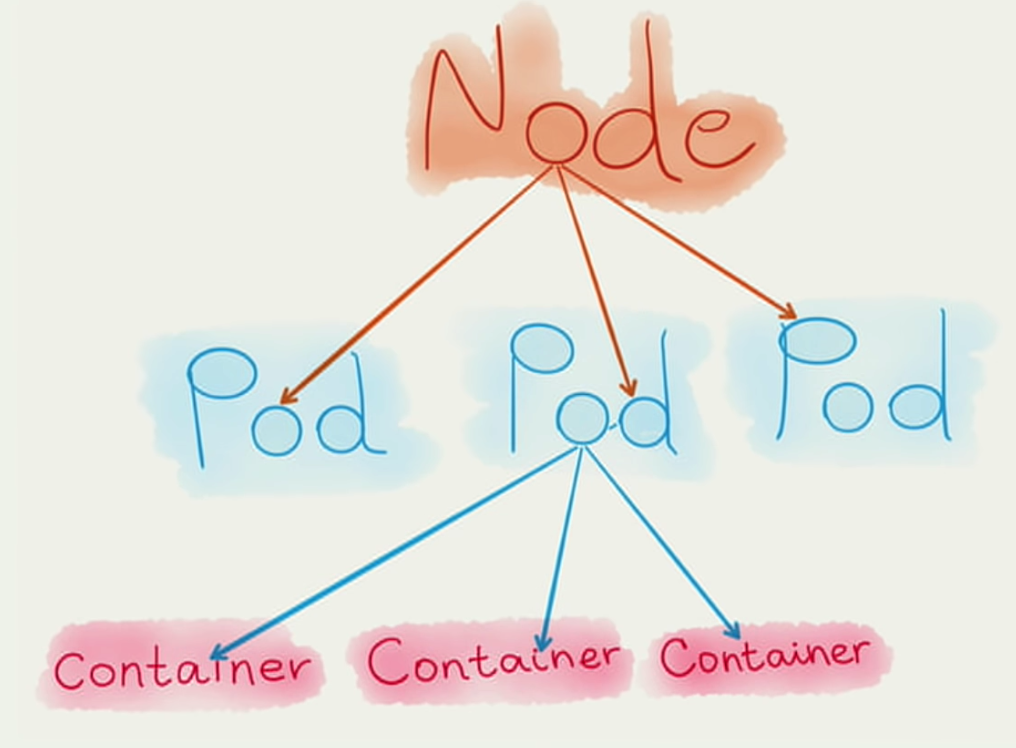 Node
Pod Pod Pod
Container Container Container